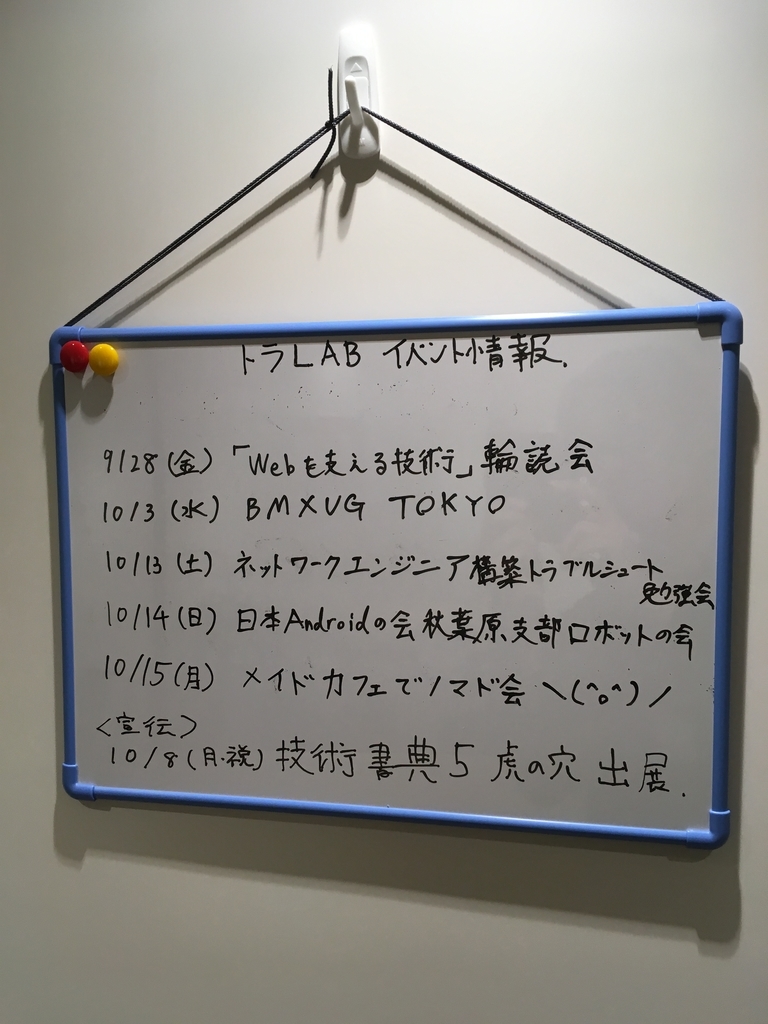 トラLAB イベント情報.
9/28(金)「Webを支える技術」輪読会
10/3(水) BMXUG TOKYO
10/13(土) ネットワークエンジニア構築トラブルシュート
勉強会
10/14(日) 日本Androidの会秋葉原支部ロボットの会
10/15(月) メイドカフェでノマド会 \(^o^)/
<宣伝>
10/8(月・祝) 技術書典5 虎の穴 出展.